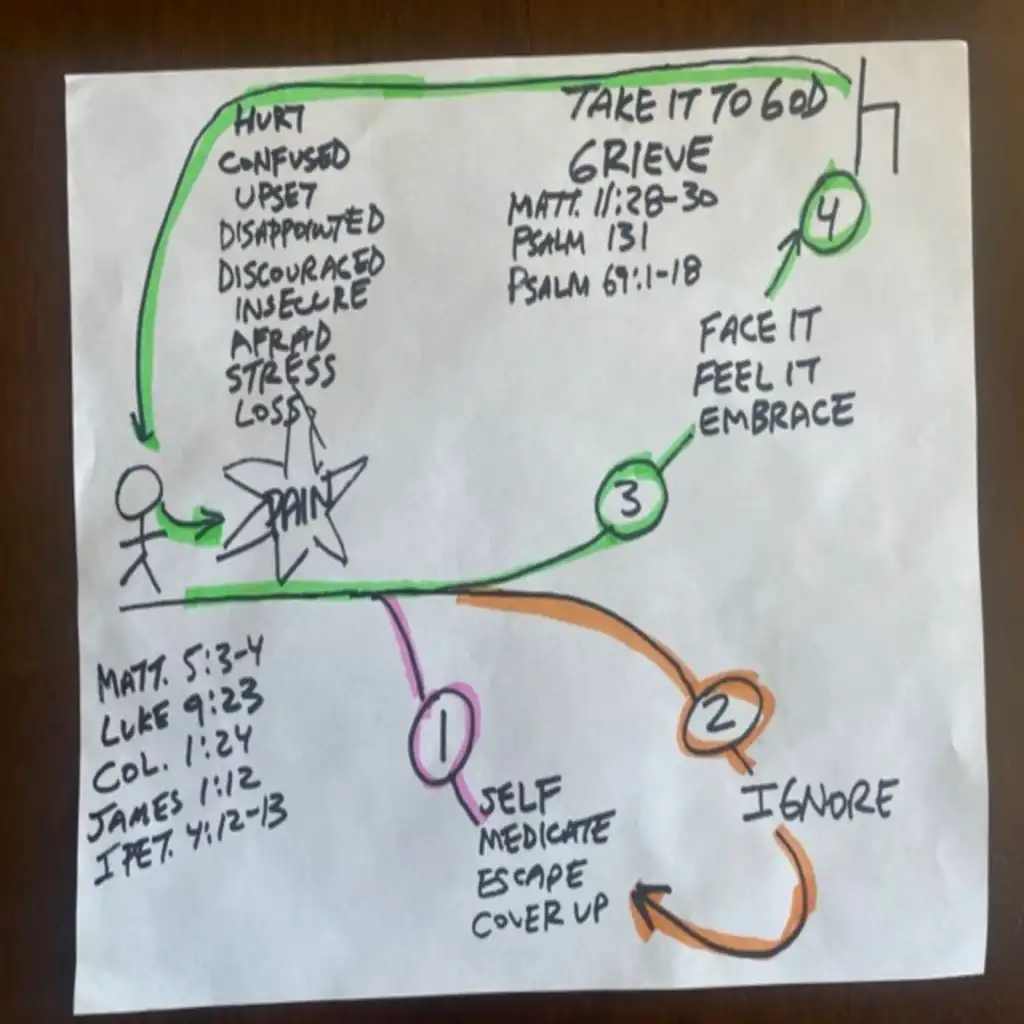 HURT
CONFUSED
UPSET
DISAPPOINTED
DISCOURAGED
INSECURE
AFRAD
STRESS
LOSS
PAIN
TAKE IT TO GOD
GRIEVE
MATT. 11:28-30
PSALM 131
PSALM 69:1-18
4
FACE IT
FEEL IT
EMBRACE
3
MATT. 5:3-4
LUKE 9:23
COL. 1:24
JAMES 1:12
I PET. 4:12-13
1
SELF
MEDICATE
ESCAPE
COVER UP
2
IGNORE